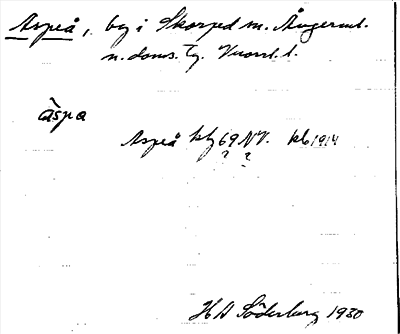 Aspeå, by i Skorped sn. Ångerml.
n. doms. Tg. Vuorl. l.
àspa
Aspeå kbj 69 NV. kb 1914
? ?
H A Söderberg 1930